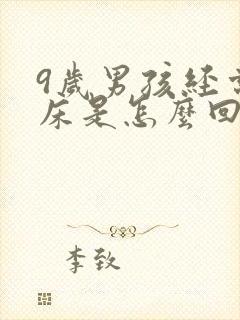 9歲男孩經常
床是怎麼回
李致